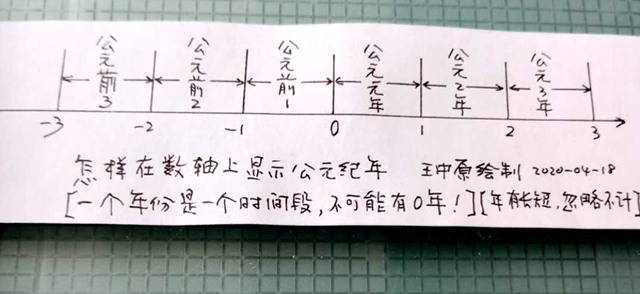 公元前3 公元前2 公元前1 公元元年 公元2年 公元3年
-3 -2 -1 0 1 2 3
怎样在数轴上显示公元纪年 王中原绘制 2020-04-18
[一个年份是一个时间段,不可能有0年!][年有长短,忽略不计]